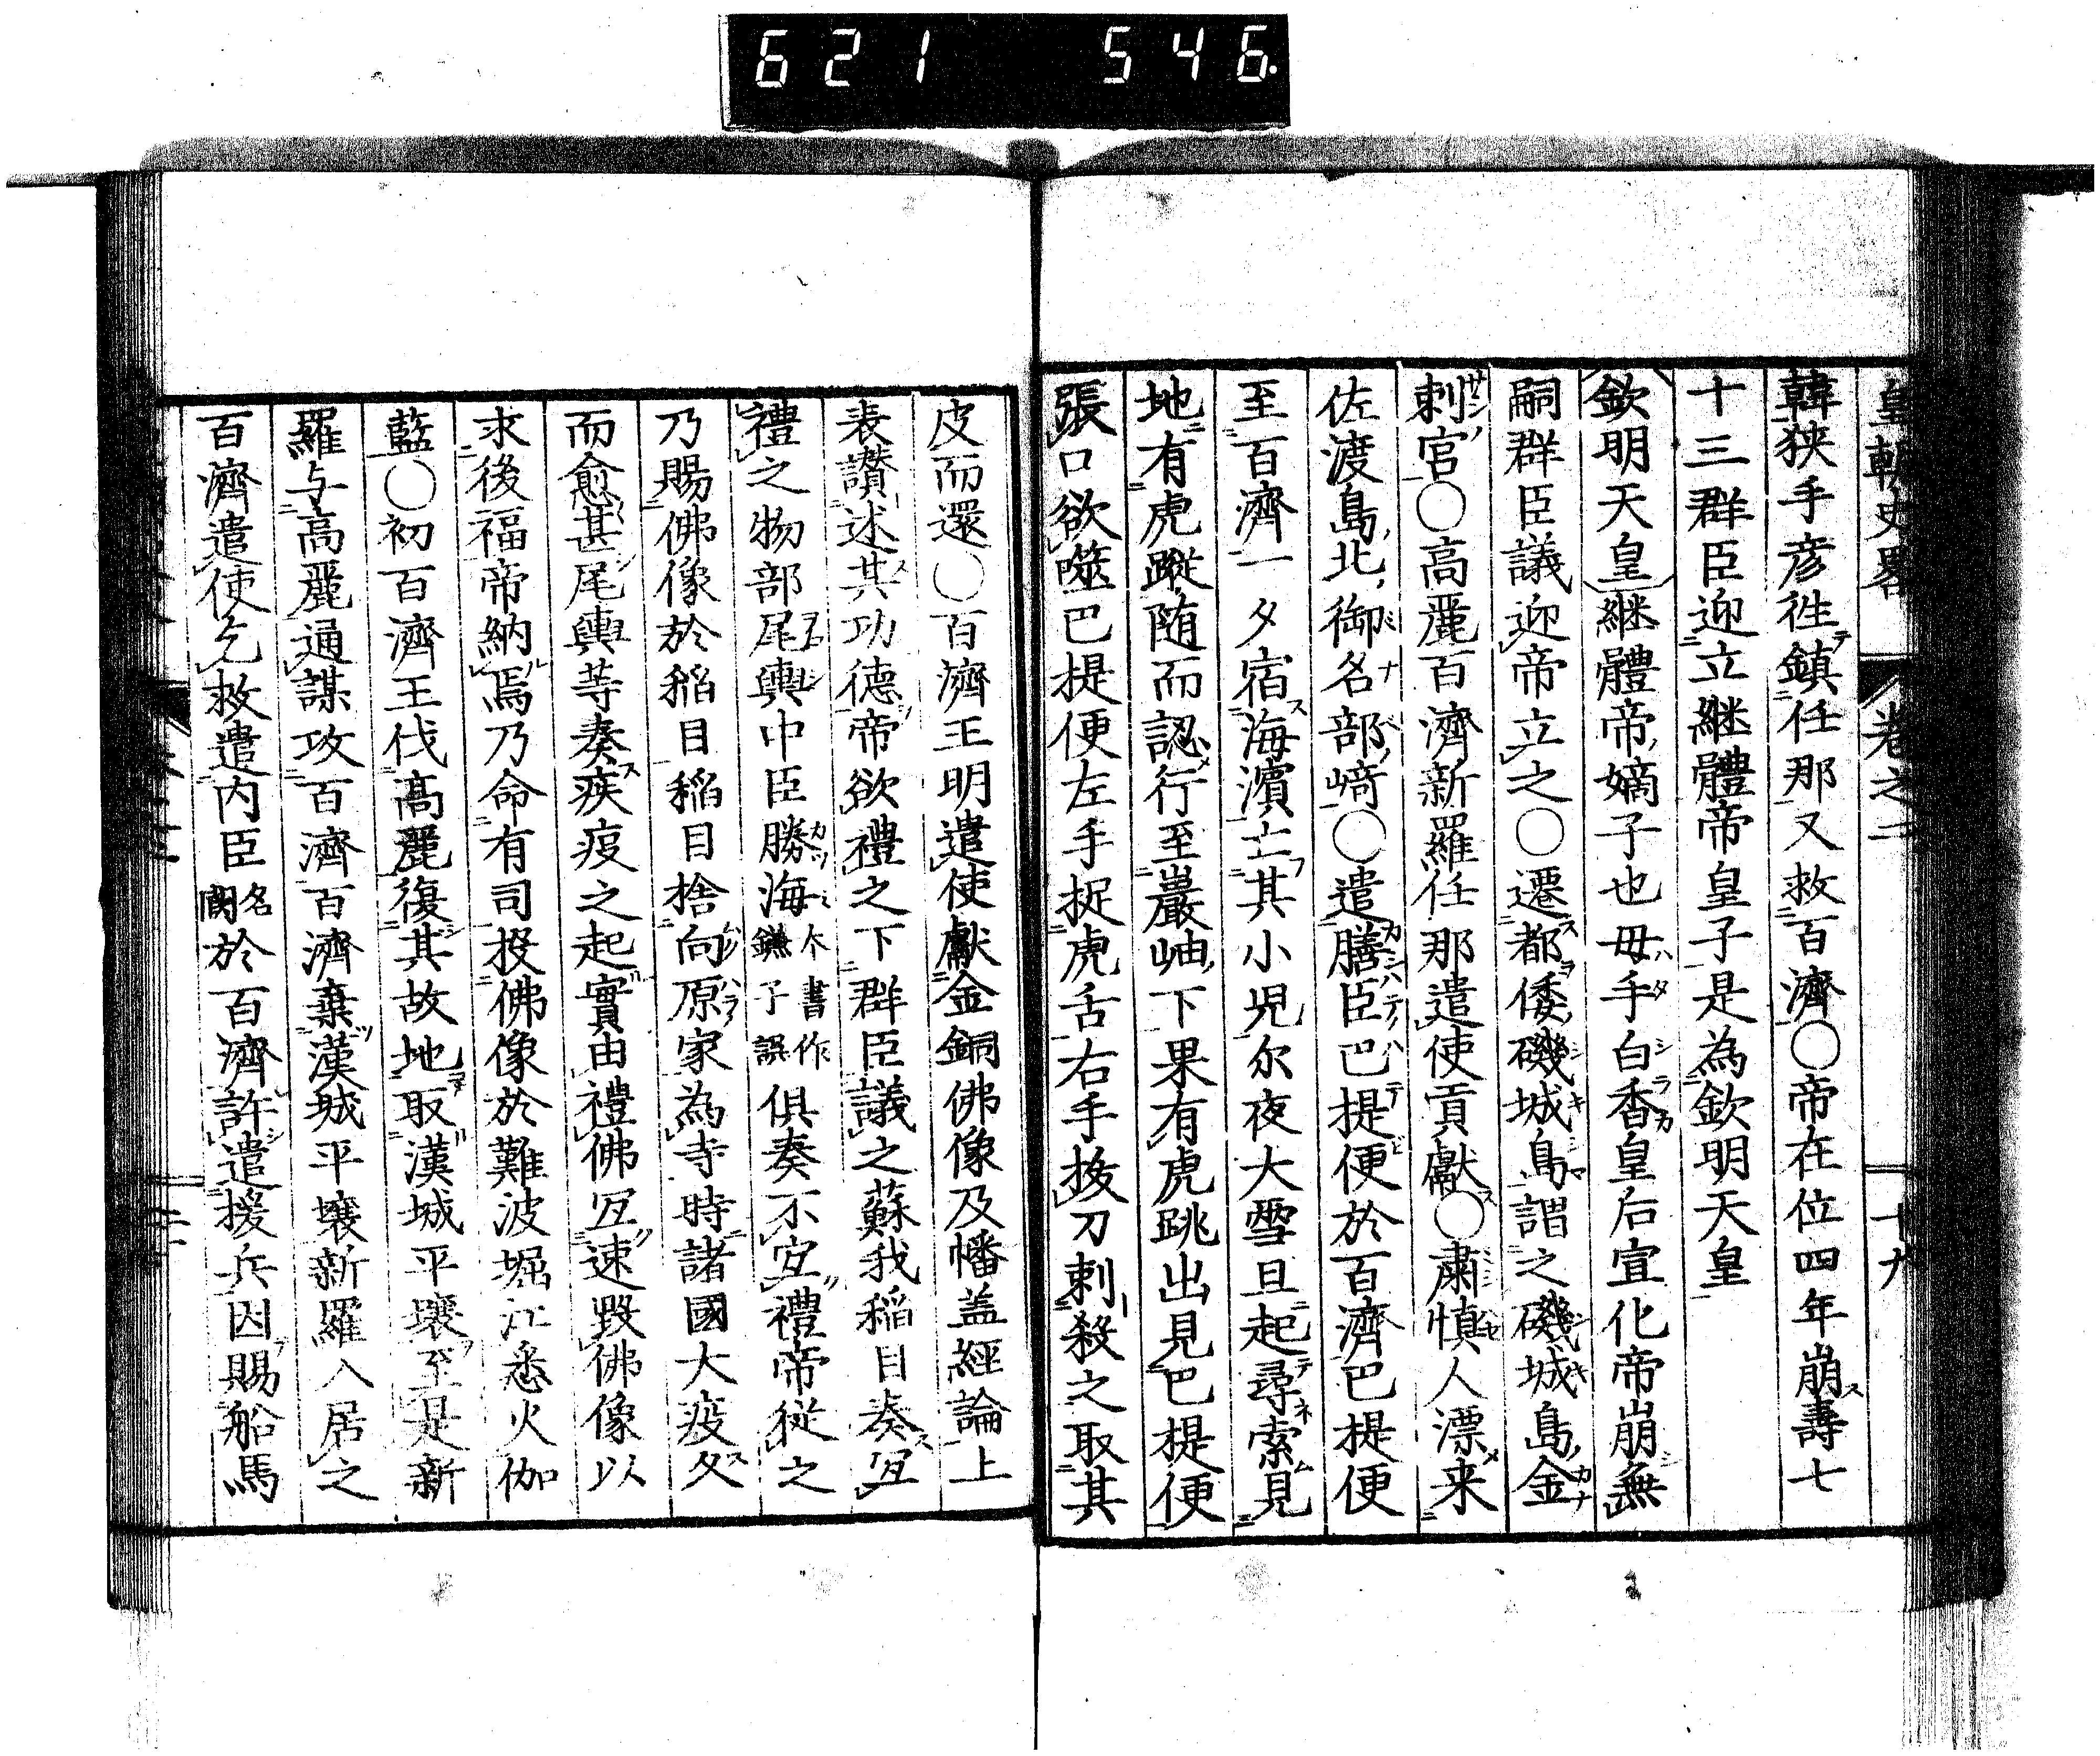 621 546.
皇朝史畧 卷之二 十九
韓狹手彦徃鎮任那又救百濟○帝在位四年崩壽七
十三群臣迎立継體帝皇子是為欽明天皇
欽明天皇継體帝嫡子也母手白香皇后宣化帝崩無
嗣群臣議迎帝立之○遷都倭磯城島謂之磯城島金
刺宮○高麗百濟新羅任那遣使貢獻○肅慎人漂来
佐渡島北御名部﨑○遣膳臣巴提便於百濟巴提便
至百濟一夕宿海濱亡其小児尔夜大雪旦起尋索見
地有虎蹤随而認行至巖岫下果有虎跳出見巴提便
張口欲噬巴提便左手捉虎舌右手拔刀刺殺之取其
皮而還○百濟王明遣使獻金銅佛像及幡盖經論上
表讃述其功德帝欲禮之下群臣議之蘇我稲目奏宜
禮之物部尾輿中臣勝海本書作鎌子誤俱奏不宜禮帝從之
乃賜佛像於稲目稲目捨向原家為寺時諸國大疫久
而愈甚尾輿等奏疾疫之起實由禮佛宜速毀佛像以
求後福帝納焉乃命有司投佛像於難波堀江悉火伽
藍○初百濟王伐高麗復其故地取漢城平壤至是新
羅与高麗通謀攻百濟百濟棄漢城平壤新羅入居之
百濟遣使乞救遣内臣名闕於百濟許遣援兵因賜船馬